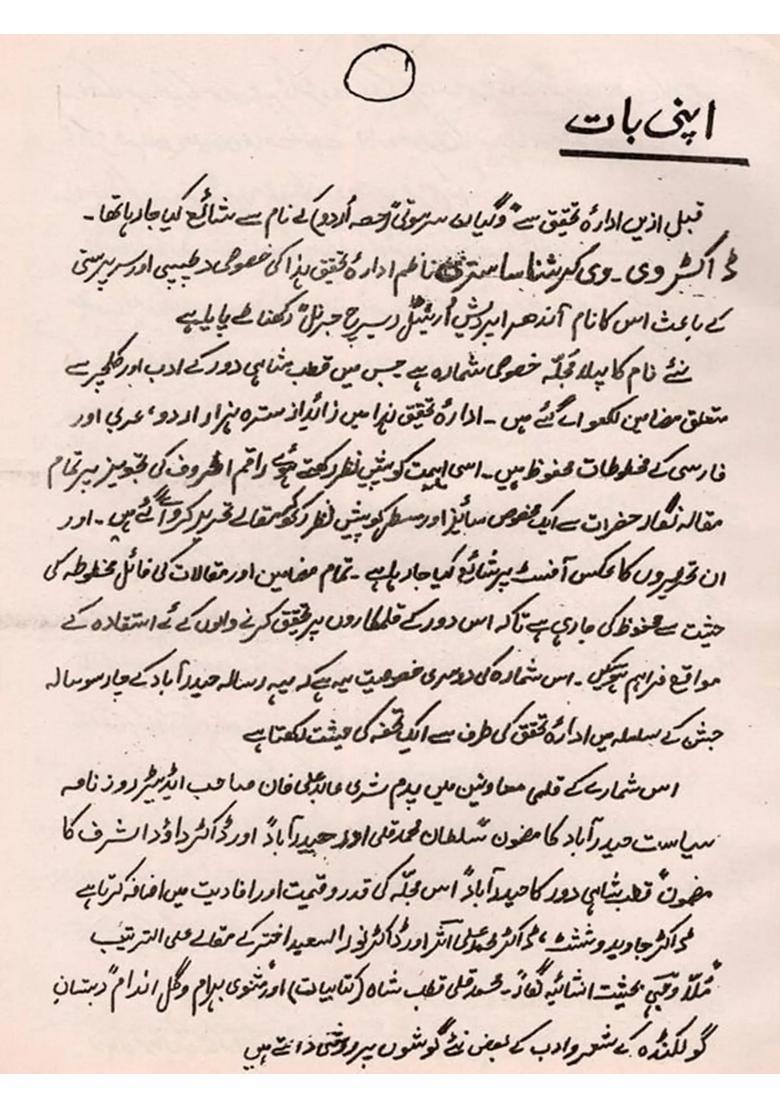 اپنی بات
قبل ازیں ادارۂ تحقیق سے "وگیان سرسوتی" (حصہ اُردو) کے نام سے شائع کیا جارہا تھا۔
ڈاکٹر وی۔ وی کرشنا ساستری ناظم ادارۂ تحقیق ہذا کی خصوصی دلچسپی اور سرپرستی
کے باعث اس کا نام آندھرا پردیش اُرئینٹل ریسرچ جرنل" رکھنا طے پایا ہے
نئے نام کا پہلا مجلّہ خصوصی شمارہ ہے جس میں قطب شاہی دور کے ادب اور کلچر سے
متعلق مضامین لکھوائے گئے ہیں۔ ادارۂ تحقیق ہذا میں زائد از سترہ ہزار اردو، عربی اور
فارسی کے مخطوطات محفوظ ہیں۔ اسی اہمیت کو پیشِ نظر رکھتے ہوئے راقم الحروف کی تجویز پر تمام
مقالہ نگار حضرات سے ایک مخصوص سائیز اور مسطر کو پیش نظر رکھ کر مقالے تحریر کروائے گئے ہیں۔ اور
ان تحریروں کا عکس آفسٹ پر شائع کیا جارہا ہے۔ تمام مضامین اور مقالات کی فائل مخطوطہ کی
حیثت سے محفوظ کی جارہی ہے تاکہ اس دور کے قلمکاروں پر تحقیق کرنے والوں کے لئے استفادہ کے
مواقع فراہم ہوسکیں۔ اس شمارہ کی دوسری خصوصیت یہ ہے کہ یہ رسالہ حیدرآباد کے چار سو سالہ
جشن کے سلسلہ میں ادارۂ تحقیق کی طرف سے ایک تحفہ کی حیثت رکھتا ہے
اس شمارے کے قلمی معاونین میں پدم شری عابد علی خان صاحب ایڈیٹر روزنامہ
سیاست حیدرآباد کا مضمون "سلطان محمد قلی اور حیدرآباد" اور ڈاکٹر داؤد اشرف کا
مضمون "قطب شاہی دور کا حیدرآباد" اس مجلّہ کی قدر و قیمت اور افادیت میں اضافہ کرتا ہے
ڈاکٹر جاوید وششٹ، ڈاکٹر محمد علی اثر اور ڈاکٹر نورالسعید اختر کے مقالے علی الترتیب
"مُلّا وجہی بحیثت انشائیہ نگار"۔ محمد قلی قطب شاہ (کتابیات) اور "مثنوی بہرام وگل اندام" دبستانِ
گولکنڈہ کے شعر و ادب کے بعض نئے گوشوں پر روشنی ڈالتے ہیں